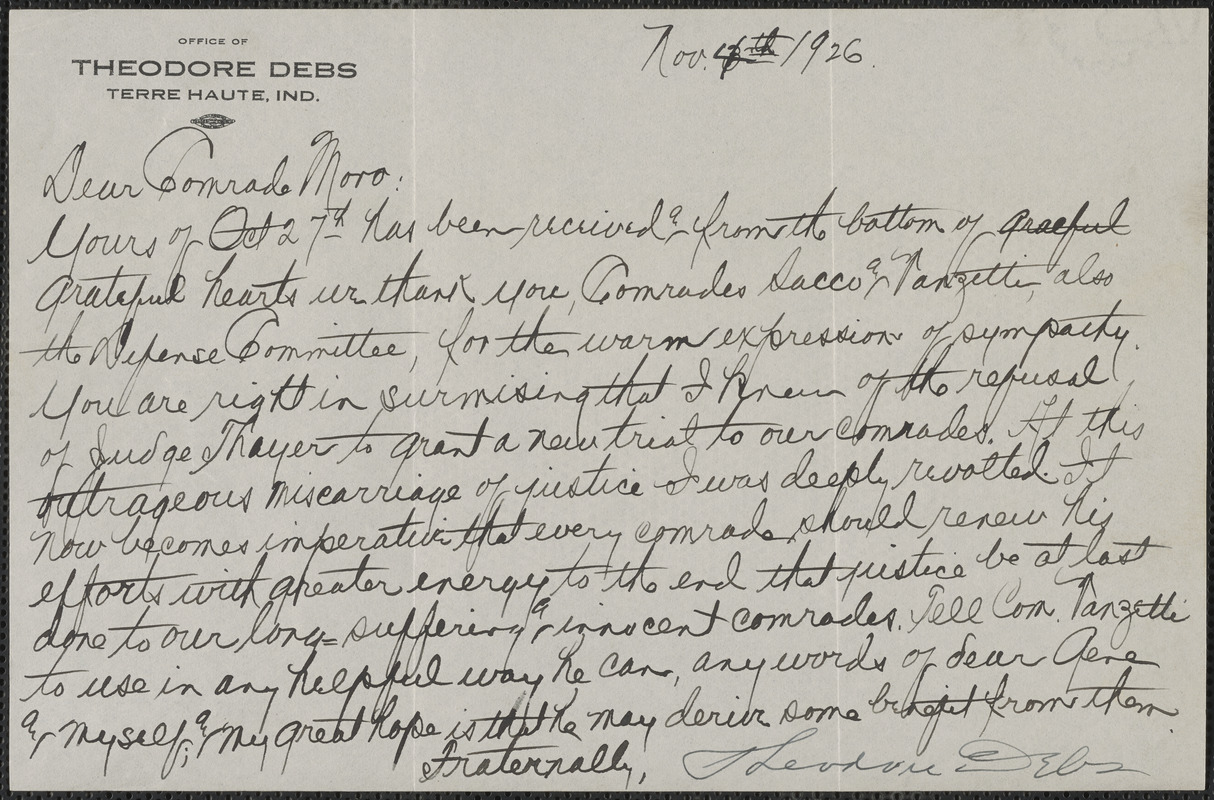 OFFICE OF
THEODORE DEBS
TERRE HAUTE, IND.
Nov. 6th 1926.
Dear Comrade Moro:
Yours of Oct 27th has been received & from the bottom of graeful
grateful hearts we thank you, Comrades Sacco & Vanzetti, also
the Defense Committee, for the warm expression of sympathy.
You are right in surmising that I knew of the refusal
of Judge Thayer to grant a new trial to our comrades. At this
outrageous miscarriage of justice I was deeply revolted. It
now becomes imperative that every comrade should renew his
efforts with greater energy to the end that justice be at last
done to our long-suffering & innocent comrades. Tell Com. Vanzetti
to use in any helpful way he can, any words of dear Gene
& myself; & my great hope is that he may derive some benefit from them
Fraternally, Theodore Debs